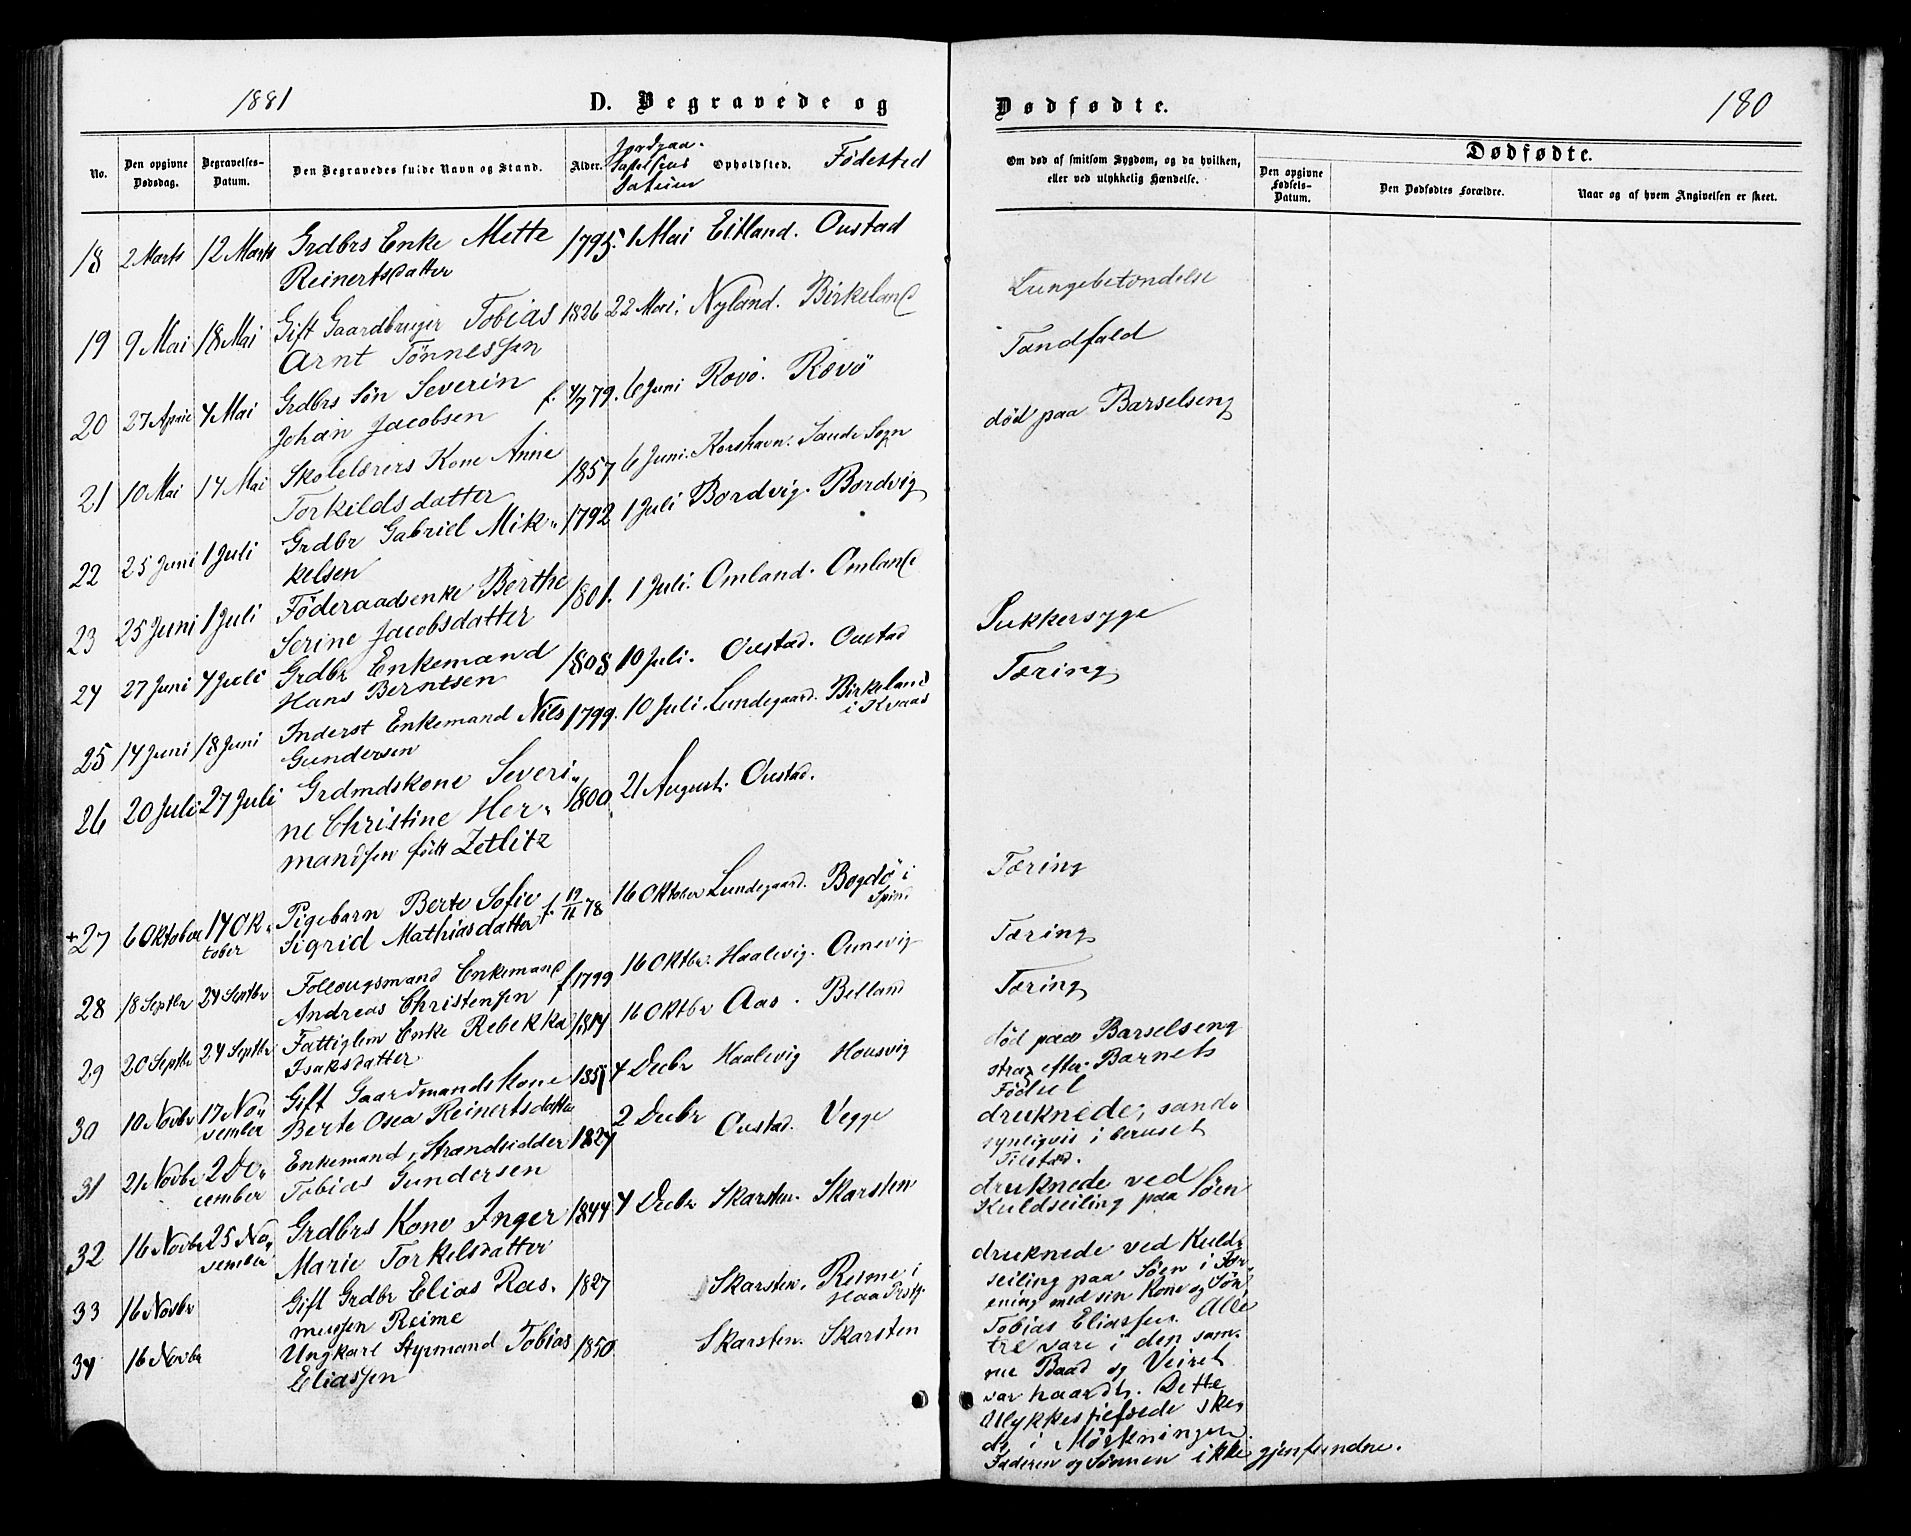 1881
D. Begravede og
No.
Den opgivne Dødsdag.
Begravelses-Datum.
Den Begravedes fulde Navn og Stand.
Alder.
Jordpaa-
Datum
Opholdsted.
Fødested
18 2 Marts 12 Marts Grdbrs Enke Mette 1795. 1 Mai Eitland. Oustad
Reinertsdatter
19 9 Mai 18 Mai Gift Gaardbruger Tobias 1826 22 Mai. Nyland. Birkeland
Arnt Tönnessen
20 27 April 4 Mai Grdbrs Søn Severin f. 4/7 79. 6 Juni Rovö. Rævö
Johan Jacobsen
21 10 Mai 14 Mai Skolelærers Kone Anne 1857 6 Juni. Korshavn. Sande Sogn
Torkildsdatter
22 25 Juni 1 Juli Grdbr Gabriel Mik- 1792 1 Juli Bordvig. Bordvig
kelsen
23 25 Juni 1 Juli Föderaadsenke Berthe 1801. 1 Juli. Omland. Omland
Serine Jacobsdatter
24 27 Juni 4 Juli Grdbr Enkemand 1808 10 Juli. Oustad. Oustad
Hans Berntsen
25 14 Juni 18 Juni Inderst Enkemand Nils 1799. 10 Juli. Lundegaard. Birkeland
i Kvaas
Gundersen
26 20 Juli 27 Juli Grdmdskone Severi- 1800. 21 August. Oustad.
ne Christine Her-
mandsen født Zetlitz
+27 6 Oktober 14 Ok- Pigebarn Berte Sofie f. 12/11 78 16 Oktober Lundegaard. Bogdö i
tober Sigrid Mathiasdatter Spind
28 18 Septbr 24 Septbr Follougsmand Enkemand f 1799 16 Oktbr. Haalevig. Ounevig
Andreas Christensen
29 20 Septbr 24 Septbr Fattiglem Enke Rebekka 1814 16 Oktbr Aas. Belland
Isaksdatter
30 10 Novbr 17 No- Gift Gaardmands Kone 1851 4 Decbr Haalevig Housvig
vember Berte Osea Reinertsdatter
31 21 Novbr 2 De- Enkemand, Strandsidder 1827 2 Decbr Oustad. Vegge
cember Tobias Gundersen
32 16 Novbr 25 No- Grdbrs Kone Inger 1844 4 Decbr Skarsten. Skarsten
vember Marie Torkelsdatter
33 16 Novbr Gift Grdbr Elias Ras- 1827 Skarsten. Reime i
Haa Prstg.
mussen Reime
34 16 Novbr Ungkarl Styrmand Tobias 1850 Skarsten. Skarsten
Eliassen
Dødfødte.
180
Om død af smitsom Sygdom, og da hvilken,
eller ved ulykkelig Hændelse.
Dødfødte.
Den opgivne Fødsels-Datum.
Den Dødfødtes Forældre.
Naar og af hvem Angivelsen er skeet.
Lungebetændelse
Tandfald
död paa Barselseng
Sukkersyge
Tæring
Tæring
Tæring
Tæring
död paa Barselseng
strax efter Barnets
Födsel
druknede, sand-
synligvis i beruset
Tilstand.
druknede ved
Kuldseiling paa Söen
druknede ved Kuld-
seiling paa Söen i For-
ening med sin Kone og Sön
Tobias Eliassen. Alle
tre vare i den sam-
me Baad og Veiret
var haardt. Dette
Ulykkestilfælde ske-
de i Mörkningen.
Faderen og Sønnen ikke gjenfundne.